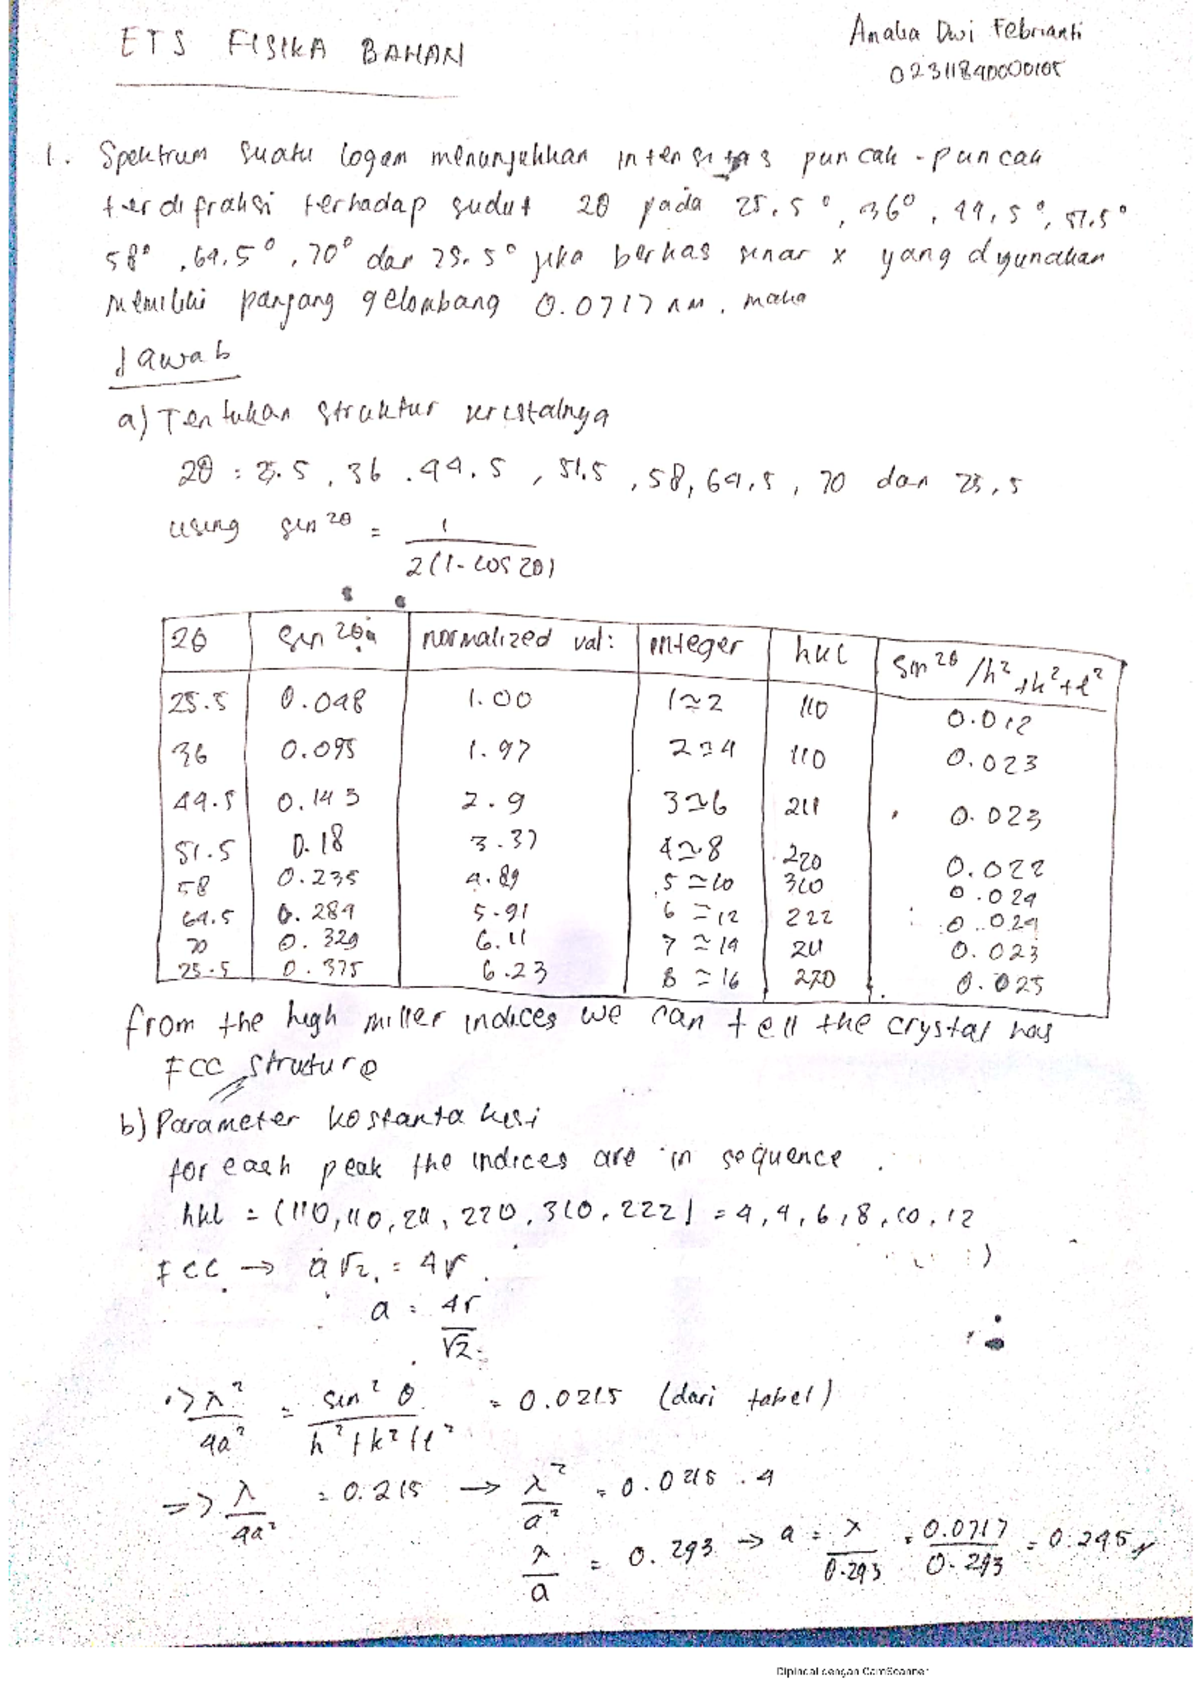 ETS FISIKA BAHAN
Analia Dwi Febrianti
02311840000105
1. Spektrum suatu logam menunjukkan intensitas puncak-puncak
terdifraksi terhadap sudut 2θ pada 25.5°, 36°, 44,5°, 51.5°
58°, 64.5°, 70° dan 75.5° jika berkas sinar x yang digunakan
memiliki panjang gelombang 0.0717 nm. maka
Jawab
a) Tentukan struktur kristalnya
2θ : 25.5, 36. 44.5, 51.5, 58, 64,5, 70 dan 75,5
using sin 2θ = 1 / 2(1-cos 2θ)
2θ | sin 2θ | normalized val: | integer | hkl | sin 2θ /h²+k²+l²
25.5 | 0.048 | 1.00 | 1≃2 | 110 | 0.012
36 | 0.095 | 1.97 | 2≃4 | 110 | 0.023
44.5 | 0.143 | 2.9 | 3≃6 | 211 | 0.023
51.5 | 0.18 | 3.37 | 4≃8 | 220 | 0.022
58 | 0.235 | 4.89 | 5≃10 | 310 | 0.024
64.5 | 0.284 | 5.91 | 6≃12 | 222 | 0.024
70 | 0.329 | 6.11 | 7≃14 | 211 | 0.023
25.5 | 0.375 | 6.23 | 8≃16 | 220 | 0.025
from the high miller indices we can tell the crystal has
FCC struture
b) Parameter kostanta kisi
for each peak the indices are in sequence
hkl = (110, 110, 211, 220, 310, 222) = 4, 4, 6, 8, 10, 12
FCC → a√2 = 4r
a = 4r / √2
=> λ² / 4a² = sin² θ / h²+k²+l² = 0.0215 (dari tabel)
=> λ / 4a² = 0.215 → λ² / a² = 0.0215 . 4
λ / a = 0.293 → a = λ / 0.293 = 0.0717 / 0.293 = 0.245
Dipindai dengan CamScanner